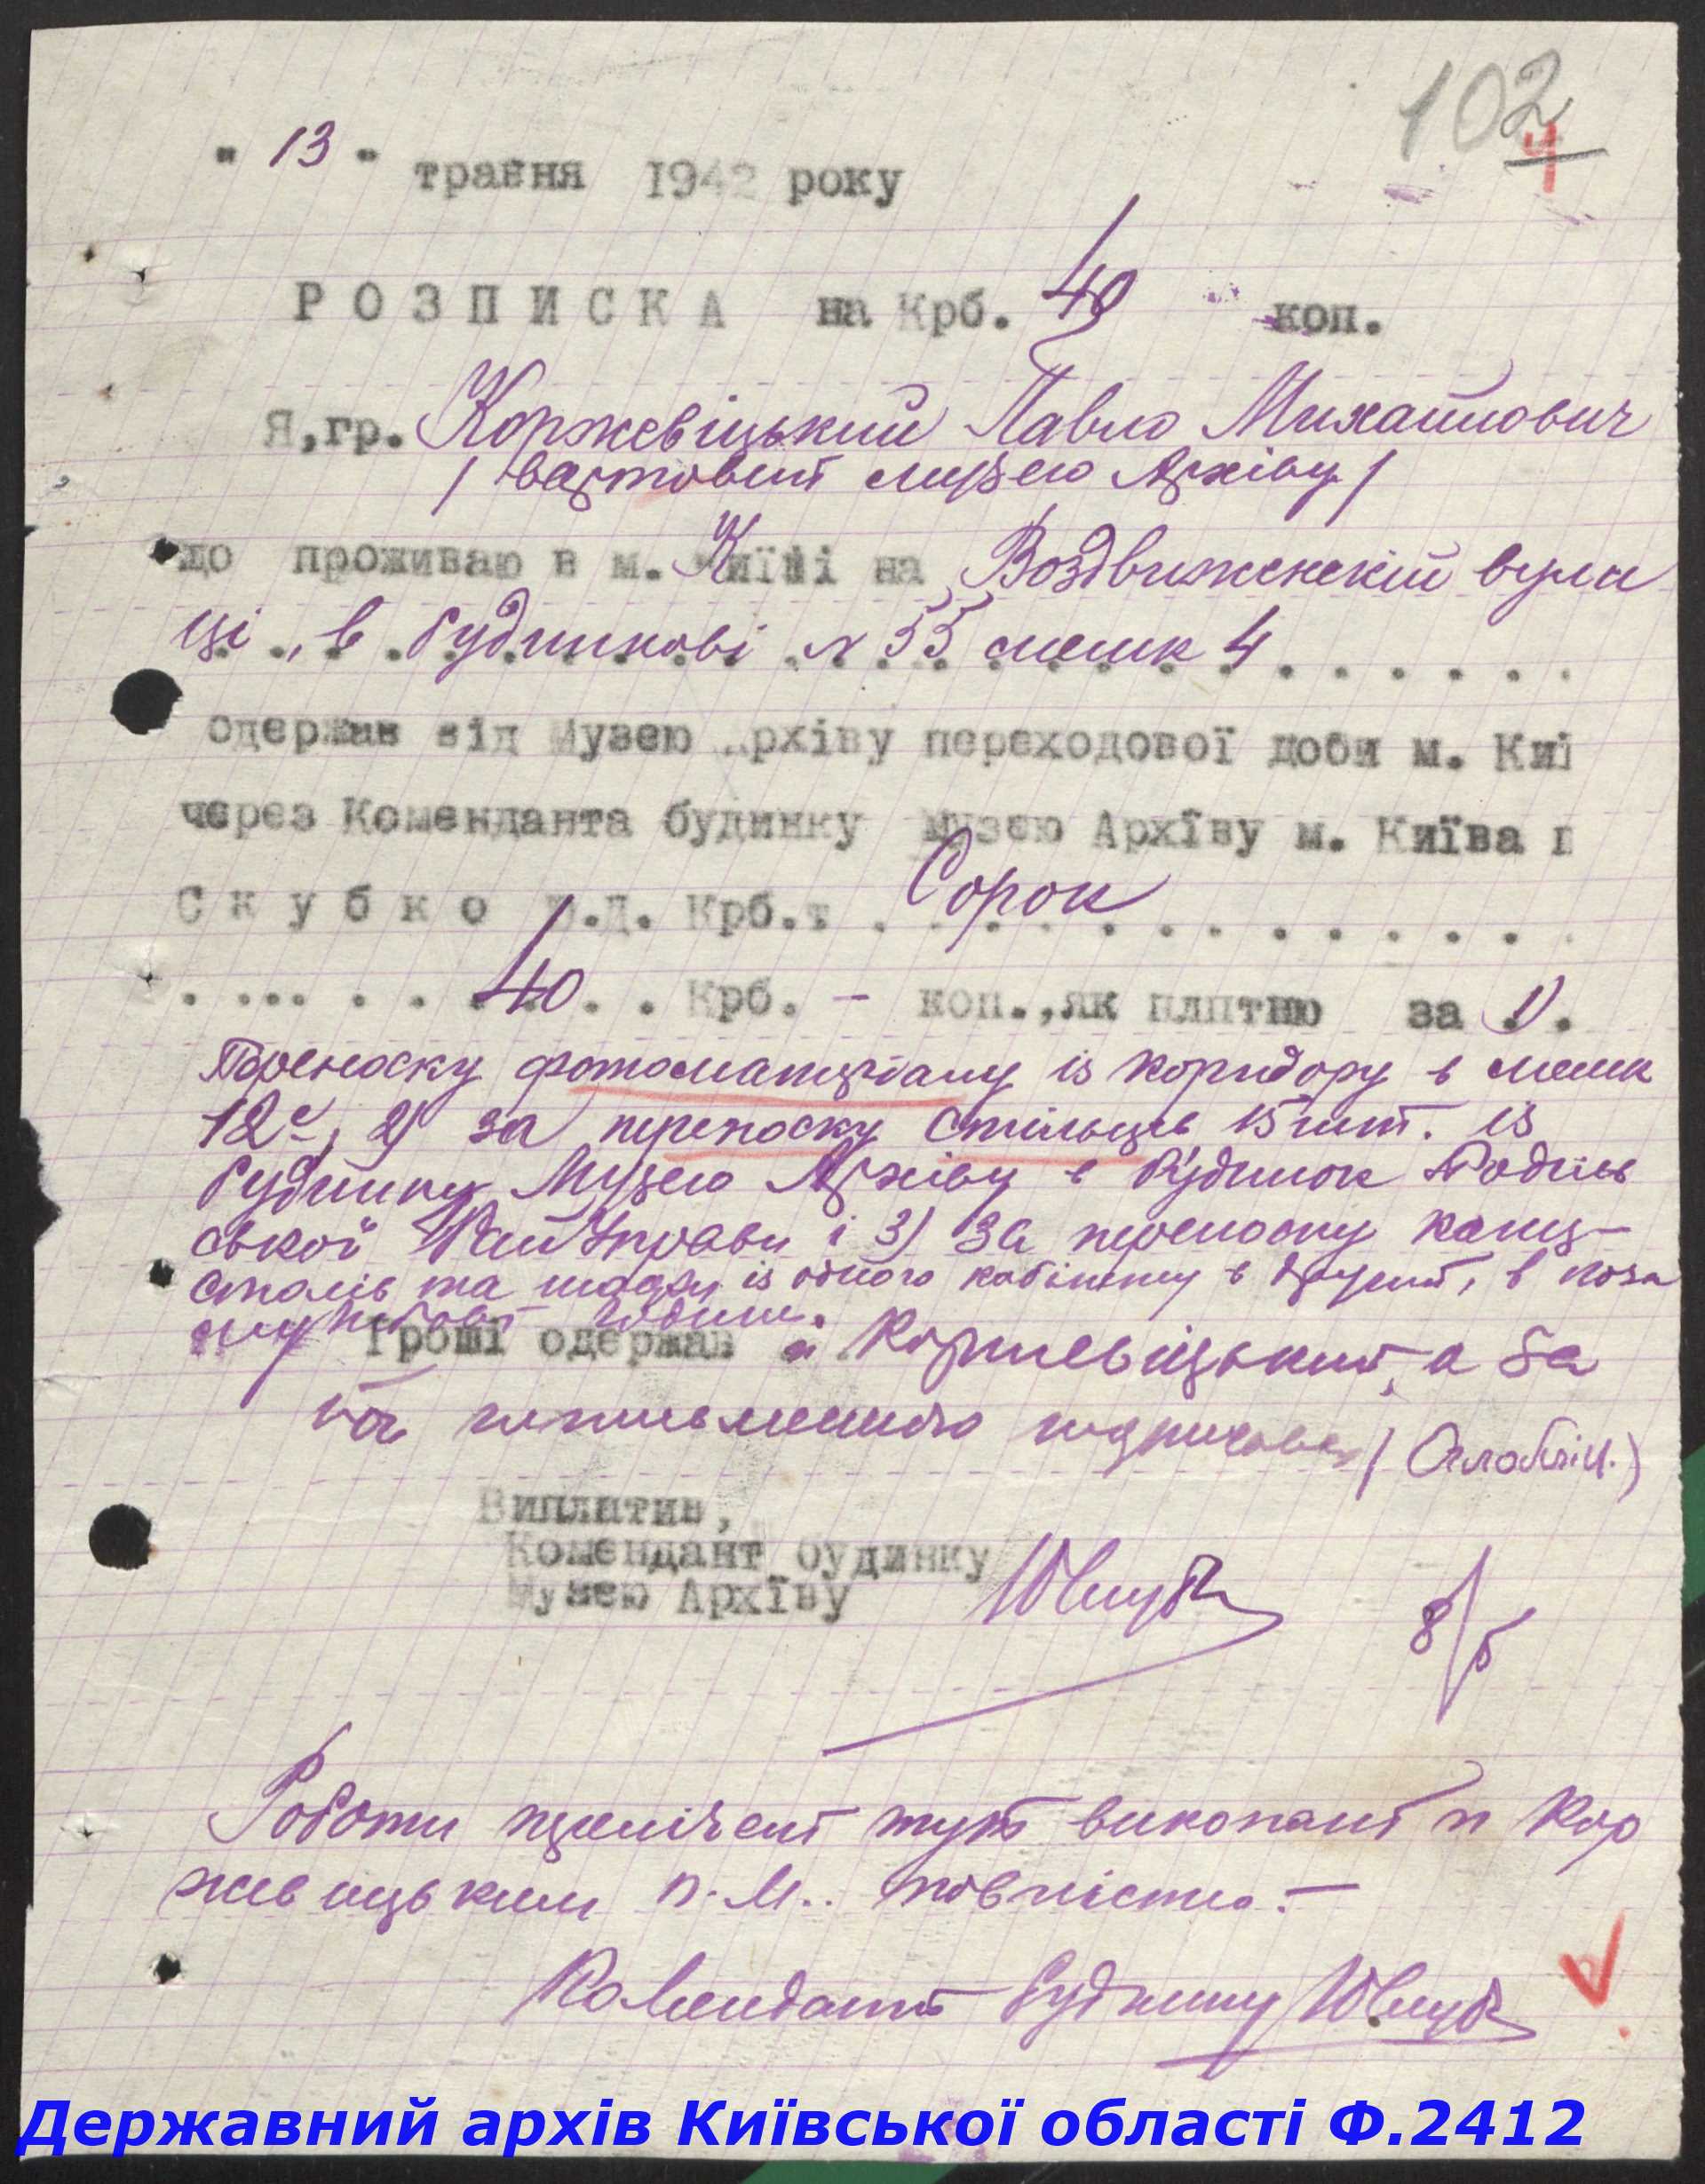 102
4
" 13 " травня 1942 року
РОЗПИСКА на Крб. 40 коп.
Я,гр. Коржевіцький Павло Михайлович
/ вартовий музею Архіву /
що проживаю в м. Київі на Воздвиженскій вули
ці, в будинкові № 55 мешк 4
одержав від Музею Архіву переходової доби м. Киї
через Коменданта будинку Музею Архіву м. Київа п
Скубко Ю.Д. Крб. Сорок
40 Крб. - коп., як плптню за 1).
Переноску фотоматеріалу із коридору в мешк
12, 2) за переноску стільців 15 шт. із
будинку Музею Архіву в будинок Поділь
ської РайУправи і 3) За переноску канц-
столів та шафи із одного кабінету в другий, в поза
Гроші одержав Коржевіцький, а за
підписався / Оглоблін.)
Виплатив,
Комендант будинку
Музею Архіву
8/5
Роботи тут виконані п Кор
жевіцьким П.М.. повністю. —
Комендант будинку
Державний архів Київської області Ф.2412